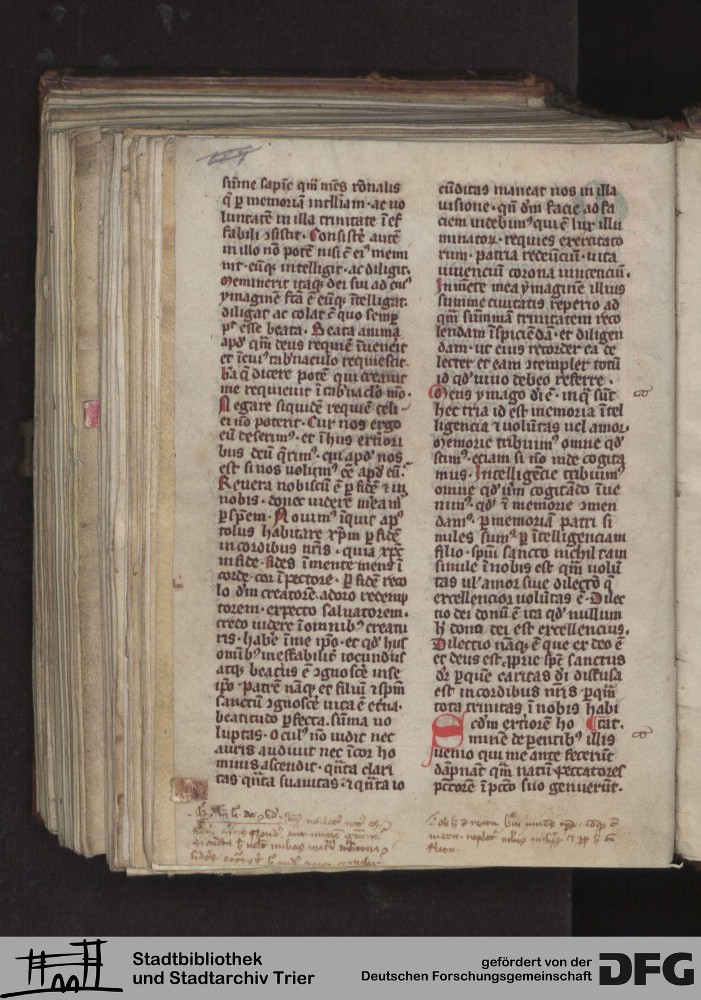 sũme sapiẽ qm̃ mẽs rõnalis
q̃ ꝑ memoriã intlliam · ac uo
luntatẽ in illa trinitate ĩ ef
fabili ↄsistit · Consistẽ autẽ
in illo nõ potẽ nisi ẽ ei⁹ memi
nit · eũq; intelligit · ac diligit.
Meminerit itaq; dei sui ad cui⁹
ymaginẽ fc̃a ẽ eũq; ĩtelligat.
diligat ac colat ẽ quo semꝑ
pt̃ esse beata · Beata anima
apd̾ qm̃ deus requiẽ ĩuenit
et ĩ cui⁹ tab̾naculo requiescit ·
b̃a q̃ dicere potẽ qui creauit
me requieuit ĩ tab̾naclõ mõ ·
Negare siquidẽ requiẽ celi
ei nõ poterit · Cur nos ergo
eũ deserim⁹ · et ĩ hus exteriori
bus deũ q̃rim⁹ · qui apd̾ nos
est si nos volum⁹ eẽ apd̾ eũ ·
Reuera nobiscũ ẽ ꝑ fidẽ ⁊ in
nobis · donec uidere meam̾
ꝑ spẽm · Nouim⁹ ĩquit ap⁹
tolus habitare xp̃m ꝑ fidẽ
in cordibus nr̃is · quia xp̃c
in fide · fides ĩ mente mens ĩ
corde · cor ĩ pectore · ꝑ fidẽ reco
lo dm̃ creatorẽ · adoro redemp
torem · expecto saluatorem ·
credo uidere ĩ omnib⁹ creatu
ris · habẽ ĩ me ipõ · et qd̾ hus
om̃ib⁹ ineffabilit̾ iocundius
atq; beatius ẽ ↄgnoscẽ in se
ipõ · Patrẽ nãq; et filiũ ⁊ sp̃m
sanctũ ↄgnoscẽ uita ẽ et̾na ·
beatitudo ꝑfecta · sũma uo
luptas · Ocul⁹ nõ uidit nec
auris audiuit nec ĩ cor ho
minis ascendit · qñta clari
tas qñta suauitas · ⁊ qñta io
cũditas maneat nos in illa
uisione · qñ dm̃ facie ad fa
ciem uidebim⁹ qui ẽ lux illu
minator̾ · requies exercitato
rum · patria redeũciũ · uita
uiuenciũ corona uincenciũ ·
In mẽte mea ymaginẽ illius
summe trinitatis reperio ad
qm̃ sũmam trinitatem reco
lendam ĩspiciẽdã · et diligen
dam · ut eius recorder ea de
lecter et eam ↄtempler totũ
id qd̾ uiuo debeo referre ·
Mens ymago di ẽ · in q̃ sũt
hec tria id est memoria ĩtel
ligencia ⁊ uolũtas uel amor ·
Memorie tribuim⁹ omne qd̾
scim⁹ · eciam si nõ inde cogita
mus · Intelligẽcie tribuim⁹
omne qd̾ uerum cogitãdo ĩue
nim⁹ · qd̾ ĩ memorie ↄmen
dam⁹ · ꝑ memoriam patri si
miles sum⁹ ꝑ ĩtelligenciam
filio · spũi sancto nichil tam
simile ĩ nobis est qm̃ volũ
tas ul̾ amor siue dilectõ q̃
excellencior uolũtas ẽ · Dilec
tio dei donũ ẽ ita qd̾ nullum
h̃ donũ dei est excellencius ·
Dilectio nãq; ẽ que ex deo ẽ
et deus est · ꝓprie sp̃c sanctus
d̾r ꝑ quẽ caritas di diffusa
est in cordibus nr̃is · ꝑ qm̃
tota trinitas ĩ nobis habi
tat.
Scdm̃ exteriorẽ ho
minẽ de ꝑentib⁹ illis
uenio qui me ante fecerũt
dãpnat̾ qm̃ natũ · peccatores
pctorẽ ĩ pctõ suo genuerũt ·
Stadtbibliothek
und Stadtarchiv Trier
gefördert von der
Deutschen Forschungsgemeinschaft
DFG